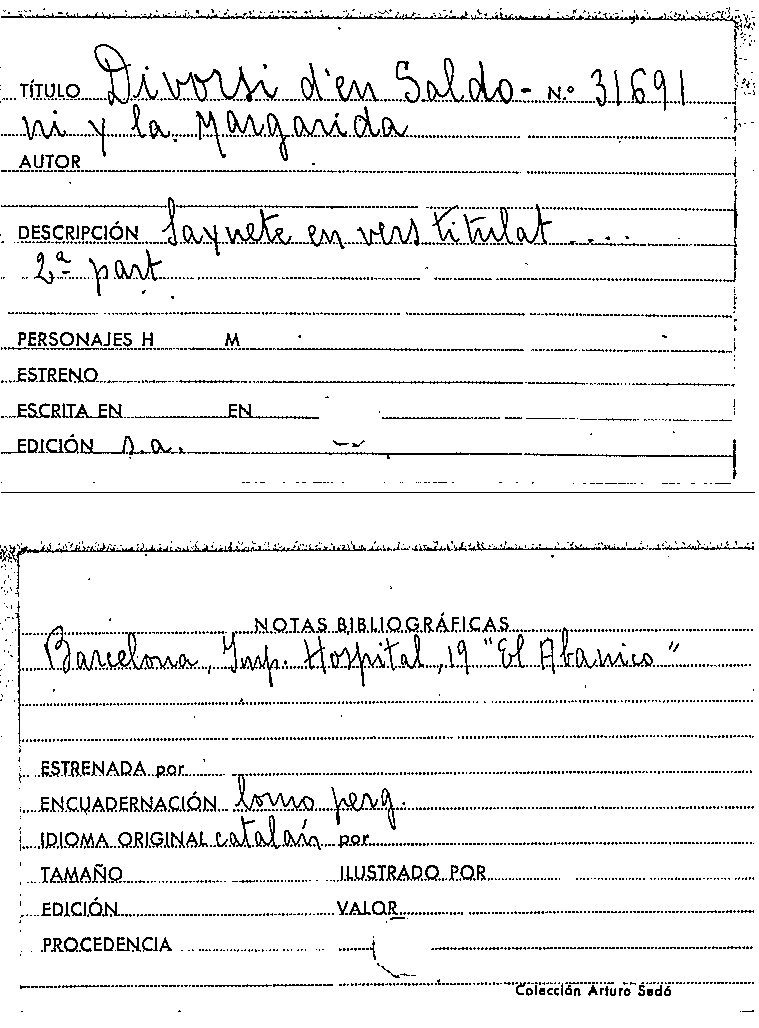 TÍTULO Divorsi d'en Saldo- N.º 31691
ni y la Margarida
AUTOR
DESCRIPCIÓN Saynete en vers titulat ....
2ª part
PERSONAJES H M
ESTRENO
ESCRITA EN EN
EDICIÓN s.a.
NOTAS BIBLIOGRÁFICAS
Barcelona, Imp. Hospital, 19 "El Abanico"
ESTRENADA por
ENCUADERNACIÓN lomo perg.
IDIOMA ORIGINAL catalán por
TAMAÑO ILUSTRADO POR
EDICIÓN VALOR
PROCEDENCIA
Colección Arturo Sedó